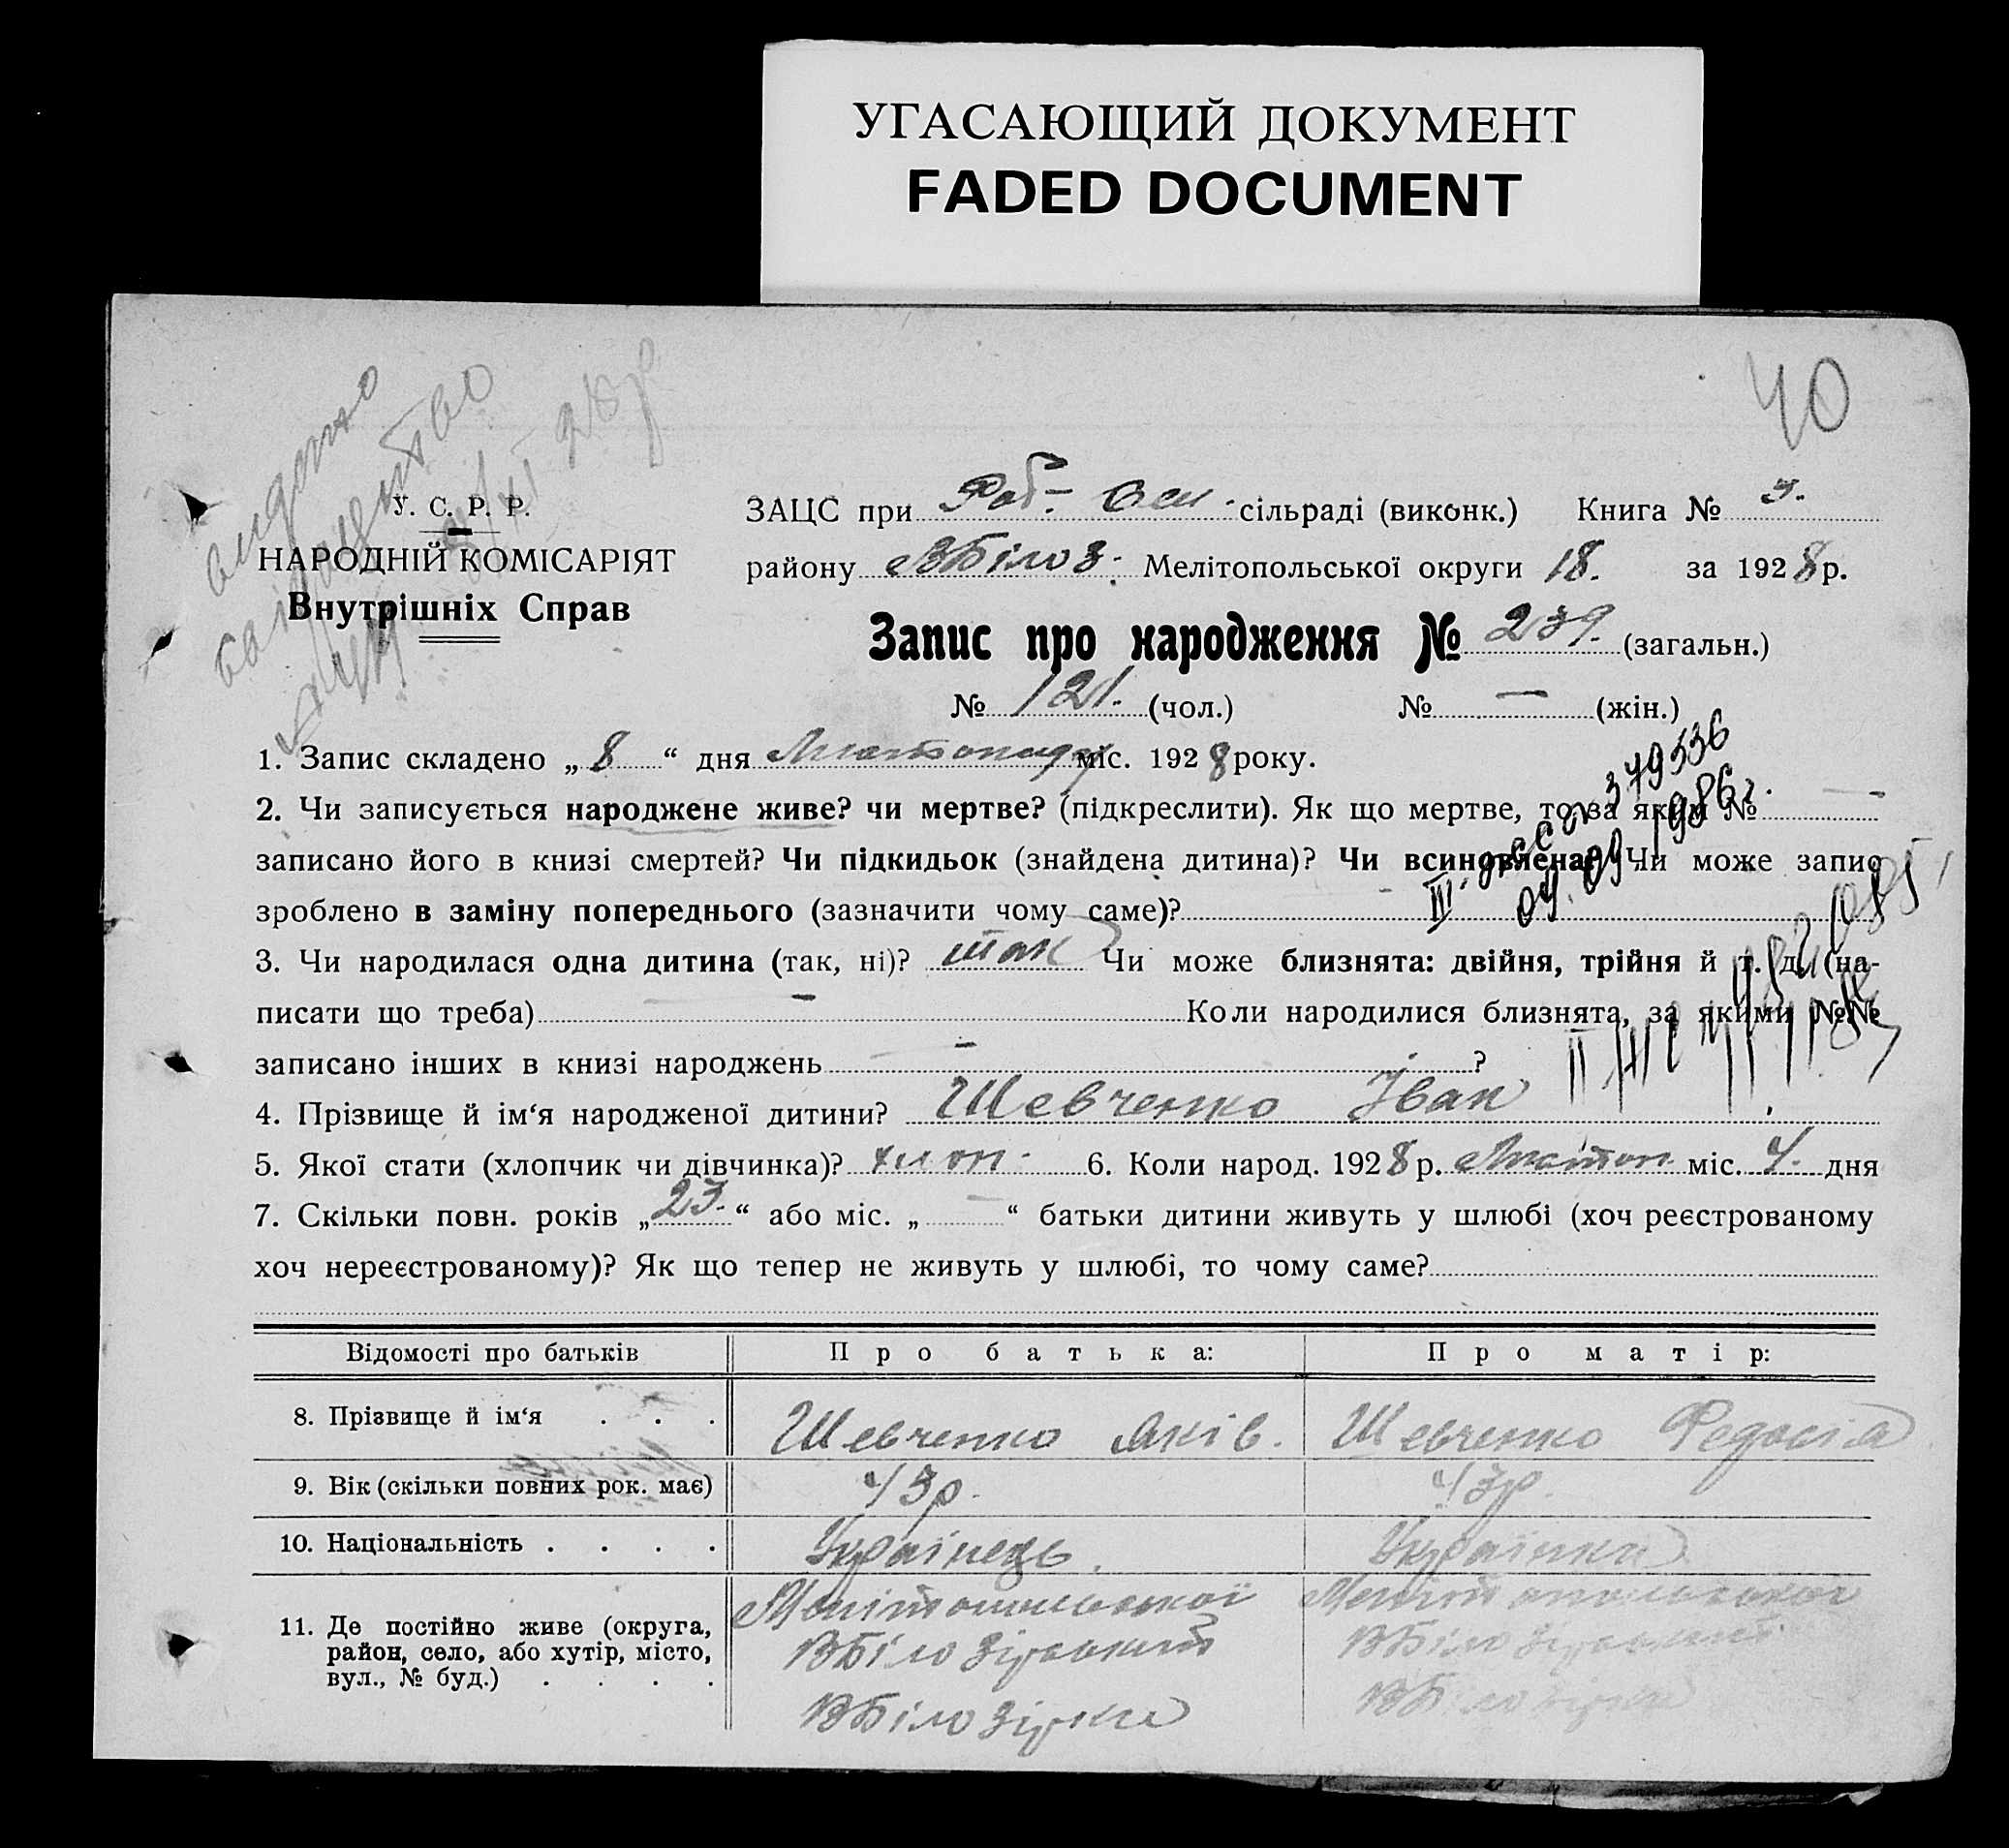 УГАСАЮЩИЙ ДОКУМЕНТ
FADED DOCUMENT
40
видано
свідоцтво
У. С. Р. Р.
НАРОДНІЙ КОМІСАРІЯТ
Внутрішніх Справ
ЗАЦС при Роб- сільраді (виконк.) Книга № 3.
району ВБілоз. Мелітопольської округи 18. за 1928 р.
Запис про народження № 239. (загальн.)
№ 121. (чол.) № — (жін.)
1. Запис складено „ 8 “ дня Листопаду міс. 1928 року.
2. Чи записується народжене живе? чи мертве? (підкреслити). Як що мертве, то за яким № —
записано його в книзі смертей? Чи підкидьок (знайдена дитина)? Чи всиновлена? Чи може запис
зроблено в заміну попереднього (зазначити чому саме)?
379536
04.09 1986г.
3. Чи народилася одна дитина (так, ні)? так Чи може близнята: двійня, трійня й т. д. (на-
писати що треба) — Коли народилися близнята, за якими №№
записано інших в книзі народжень — ?
4. Прізвище й ім‘я народженої дитини? Шевченко Іван
5. Якої стати (хлопчик чи дівчинка)? хлоп. 6. Коли народ. 1928 р. Листоп. міс. 4. дня
7. Скільки повн. років „ 23. “ або міс. „ — “ батьки дитини живуть у шлюбі (хоч реєстрованому
хоч нереєстрованому)? Як що тепер не живуть у шлюбі, то чому саме?
Відомості про батьків Про батька: Про матір:
8. Прізвище й ім‘я . . . Шевченко Яків. Шевченко Федосія
9. Вік (скільки повних рок. має) 43р. 43р.
10. Національність . . . . Українець. Українка
11. Де постійно живе (округа, район, село, або хутір, місто, вул., № буд.) . . . .
Мелітопольської Мелітопольської
ВБілозірський ВБілозірський
ВБілозірка ВБілозірка